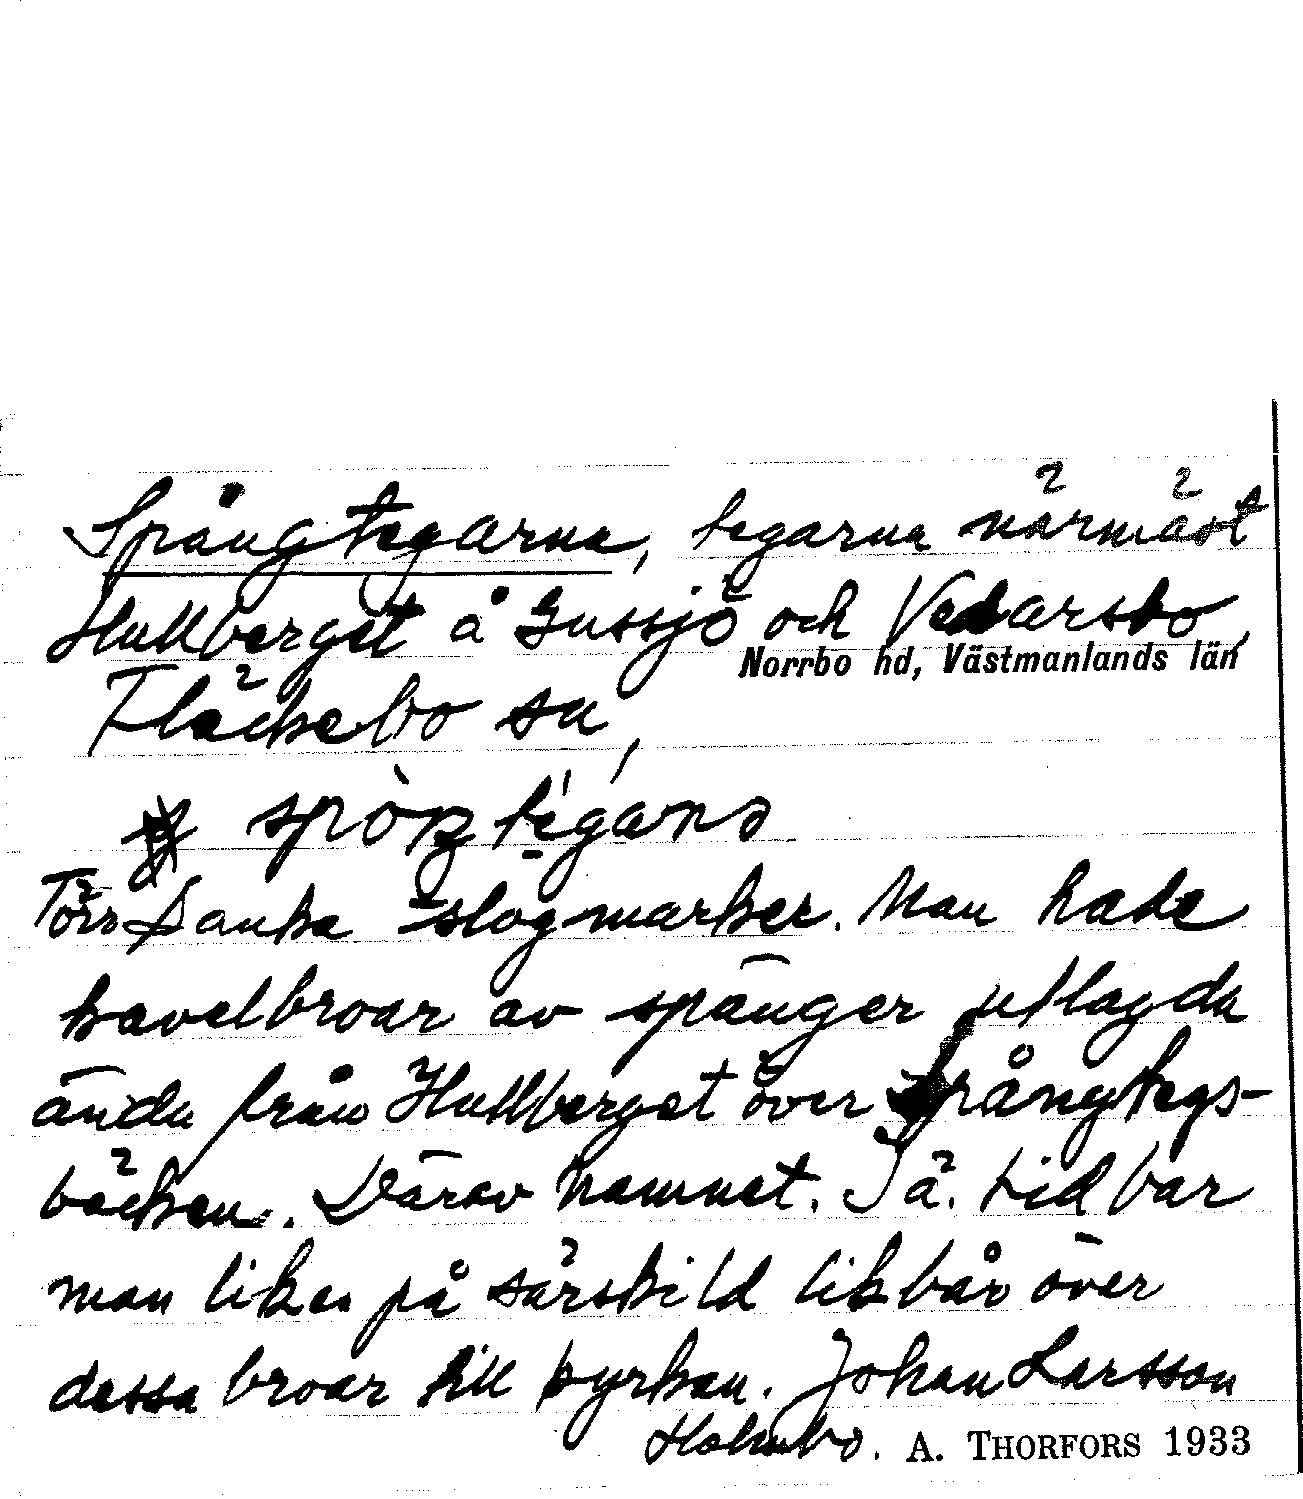 Spångtegarna, tegarna närmäst
Hullberget å Gussjö och Vedarsbo,
Norrbo hd, Västmanlands län
Fläckebo sn,
spòŋtegana
Törr Danka slogmarker. Man hade
kavelbroar av spänger utlagda
ända från Hullberget över Spångtegs-
bäcken. Därav namnet. I ä. tid bar
man liken på särskild likbår över
dessa broar till kyrkan. Johan Larsson
Holmbo. A. THORFORS 1933